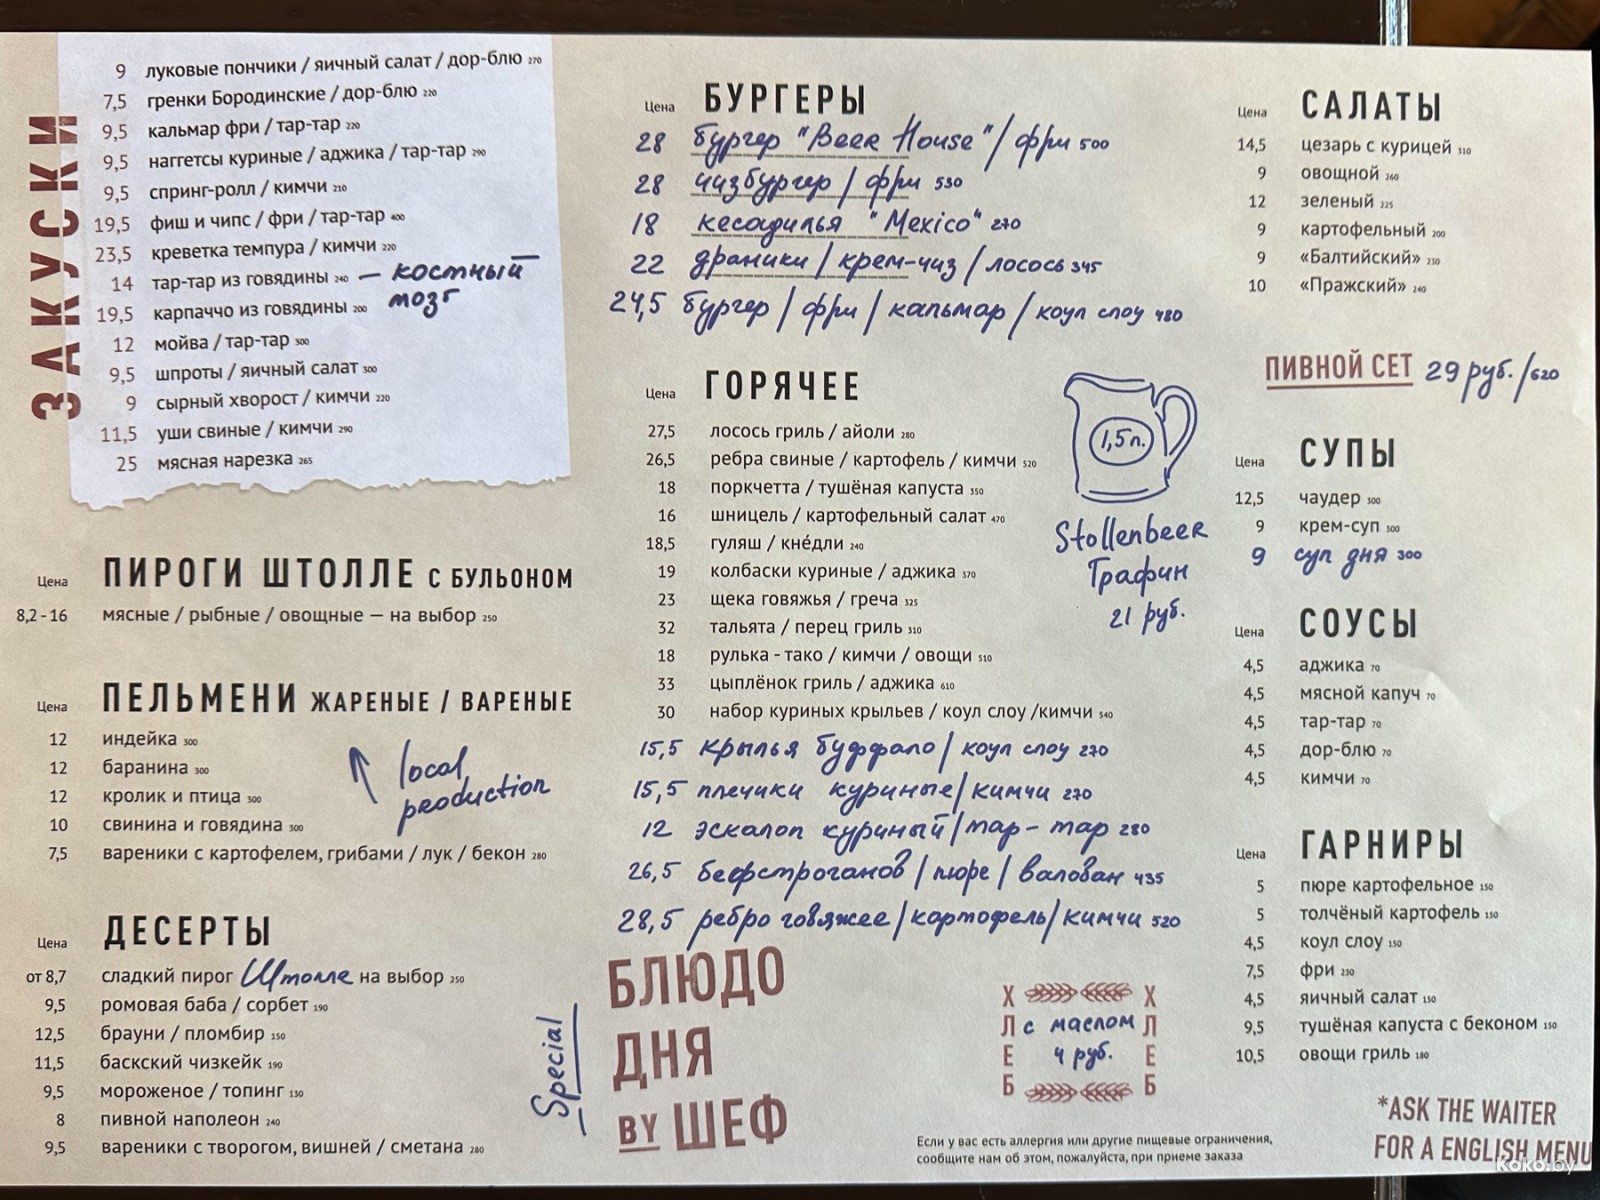 ЗАКУСКИ
9 луковые пончики / яичный салат / дор-блю 270
7,5 гренки Бородинские / дор-блю 220
9,5 кальмар фри / тар-тар 220
9,5 наггетсы куриные / аджика / тар-тар 290
9,5 спринг-ролл / кимчи 210
19,5 фиш и чипс / фри / тар-тар 400
23,5 креветка темпура / кимчи 220
14 тар-тар из говядины 240 — костный мозг
19,5 карпаччо из говядины 200
12 мойва / тар-тар 300
9,5 шпроты / яичный салат 300
9 сырный хворост / кимчи 220
11,5 уши свиные / кимчи 290
25 мясная нарезка 265
Цена ПИРОГИ ШТОЛЛЕ С БУЛЬОНОМ
8,2 - 16 мясные / рыбные / овощные — на выбор 250
Цена ПЕЛЬМЕНИ ЖАРЕНЫЕ / ВАРЕНЫЕ
12 индейка 300
12 баранина 300
12 кролик и птица 300
10 свинина и говядина 300
7,5 вареники с картофелем, грибами / лук / бекон 280
local
production
Цена ДЕСЕРТЫ
от 8,7 сладкий пирог Штолле на выбор 250
9,5 ромовая баба / сорбет 190
12,5 брауни / пломбир 150
11,5 баскский чизкейк 190
9,5 мороженое / топинг 130
8 пивной наполеон 240
9,5 вареники с творогом, вишней / сметана 280
Цена БУРГЕРЫ
28 бургер "Beer House" / фри 500
28 чизбургер / фри 530
18 кесадилья "Mexico" 270
22 драники / крем-чиз / лосось 345
24,5 бургер / фри / кальмар / коул слоу 480
Цена ГОРЯЧЕЕ
27,5 лосось гриль / айоли 280
26,5 ребра свиные / картофель / кимчи 520
18 поркчетта / тушёная капуста 350
16 шницель / картофельный салат 470
18,5 гуляш / кне́дли 240
19 колбаски куриные / аджика 370
23 щека говяжья / греча 325
32 тальята / перец гриль 310
18 рулька - тако / кимчи / овощи 510
33 цыплёнок гриль / аджика 610
30 набор куриных крыльев / коул слоу /кимчи 540
15,5 крылья буффало / коул слоу 270
15,5 плечики куриные / кимчи 270
12 эскалоп куриный / тар-тар 280
26,5 бефстроганов / пюре / валован 435
28,5 ребро говяжее / картофель / кимчи 520
1,5 л.
Stollenbeer
Графин
21 руб.
Special
БЛЮДО
ДНЯ
BY ШЕФ
ХЛЕБ
с маслом
4 руб.
ХЛЕБ
Если у вас есть аллергия или другие пищевые ограничения,
сообщите нам об этом, пожалуйста, при приеме заказа
Цена САЛАТЫ
14,5 цезарь с курицей 310
9 овощной 260
12 зеленый 225
9 картофельный 200
9 «Балтийский» 230
10 «Пражский» 240
ПИВНОЙ СЕТ 29 руб. / 620
Цена СУПЫ
12,5 чаудер 300
9 крем-суп 300
9 суп дня 300
Цена СОУСЫ
4,5 аджика 70
4,5 мясной капуч 70
4,5 тар-тар 70
4,5 дор-блю 70
4,5 кимчи 70
Цена ГАРНИРЫ
5 пюре картофельное 150
5 толчёный картофель 150
4,5 коул слоу 150
7,5 фри 230
4,5 яичный салат 150
9,5 тушёная капуста с беконом 150
10,5 овощи гриль 180
*ASK THE WAITER
FOR A ENGLISH MENU
koko.by